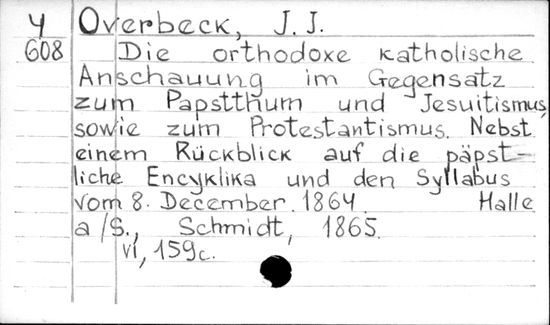 Ч Overbeck, J. J.
608 Die orthodoxe katholische
Anschauung im Gegensatz
zum Papstthum und Jesuitismus,
sowie zum Protestantismus. Nebst
einem Rückblick auf die päpst-
liche Encyklika und den Syllabus
vom 8. December 1864. Halle
a/S., Schmidt, 1865.
VI, 159c.